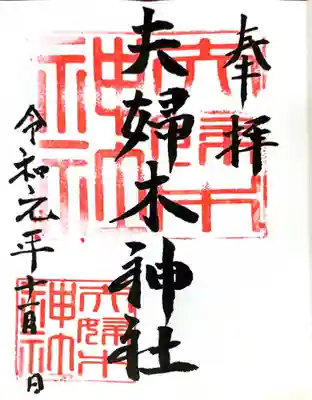 奉拝
夫婦木神社
令和元年十一月 日
夫婦木神社
夫婦木神社